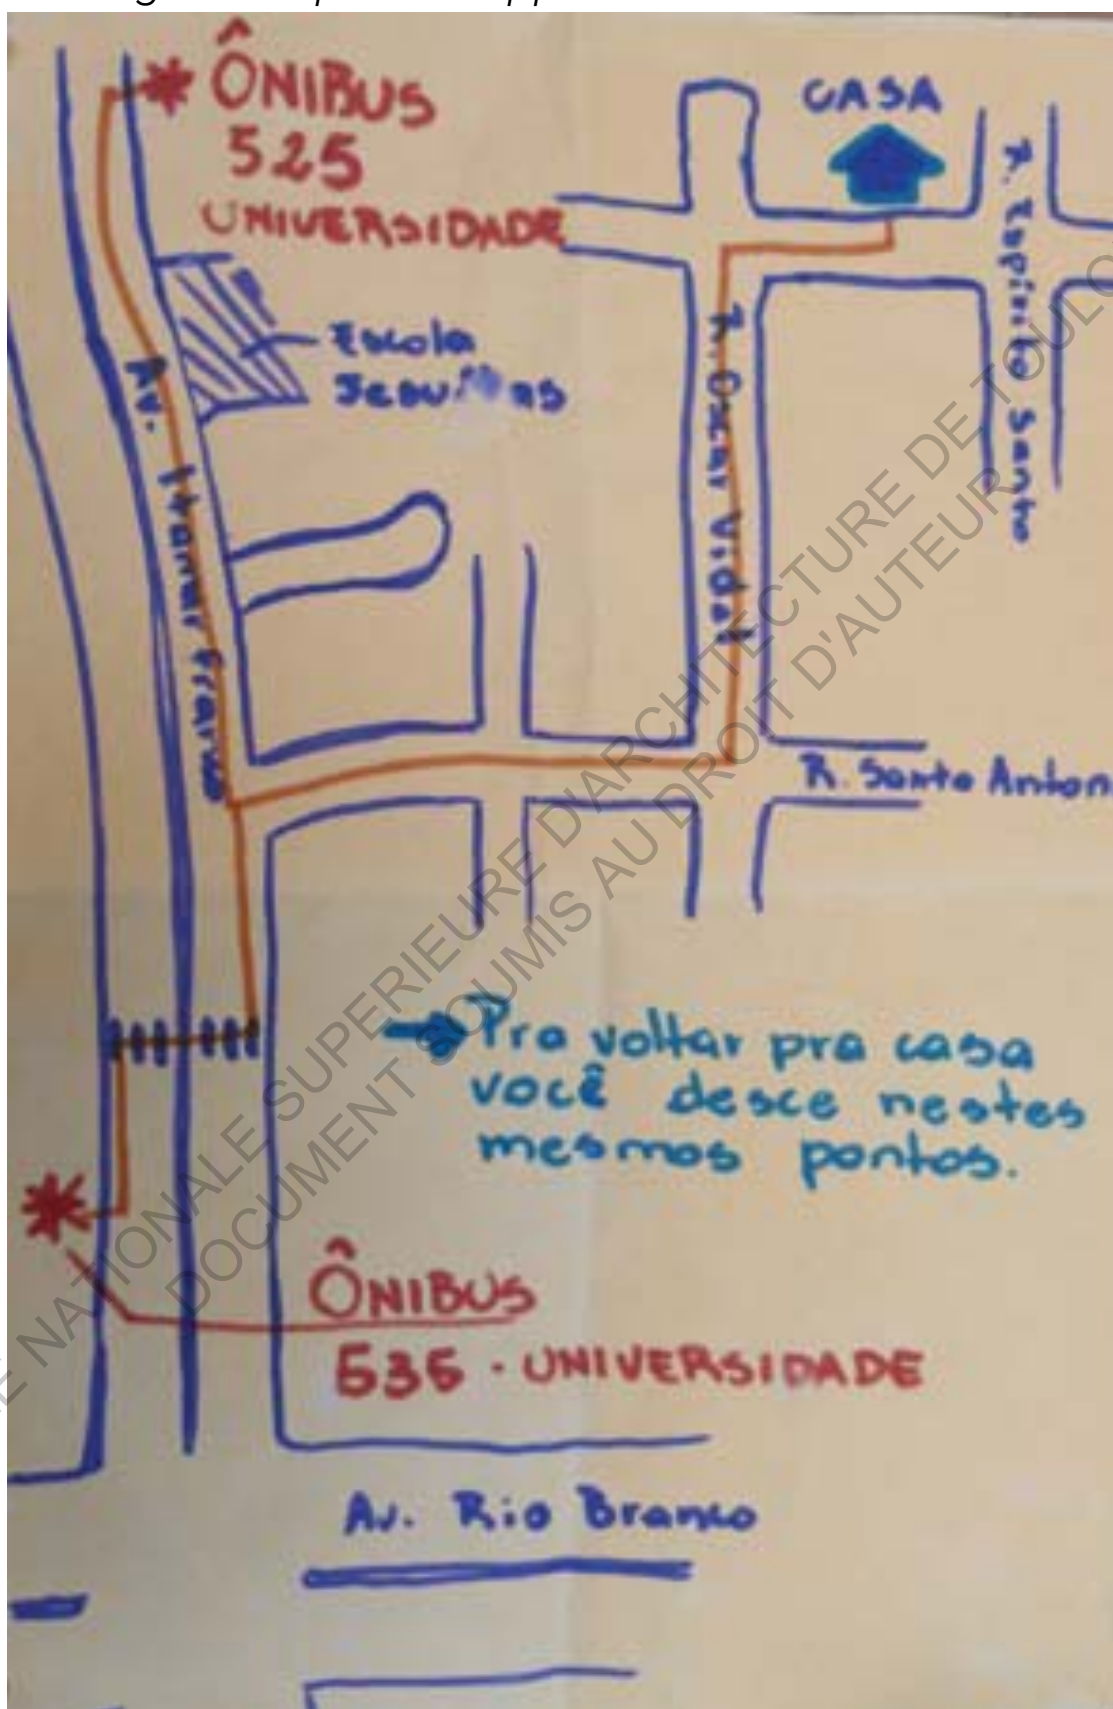 ÔNIBUS
525
UNIVERSIDADE
CASA
R. Espírito Santo
Escola
R. Oscar Vidal
Av. Itamar Franco
R. Santo Anton
Pra voltar pra casa
você desce nestes
mesmos pontos.
ÔNIBUS
535 - UNIVERSIDADE
Av. Rio Branco
NATIONALE SUPERIEURE D'ARCHITECTURE DE TOULO
DOCUMENT SOUMIS AU DROIT D'AUTEUR